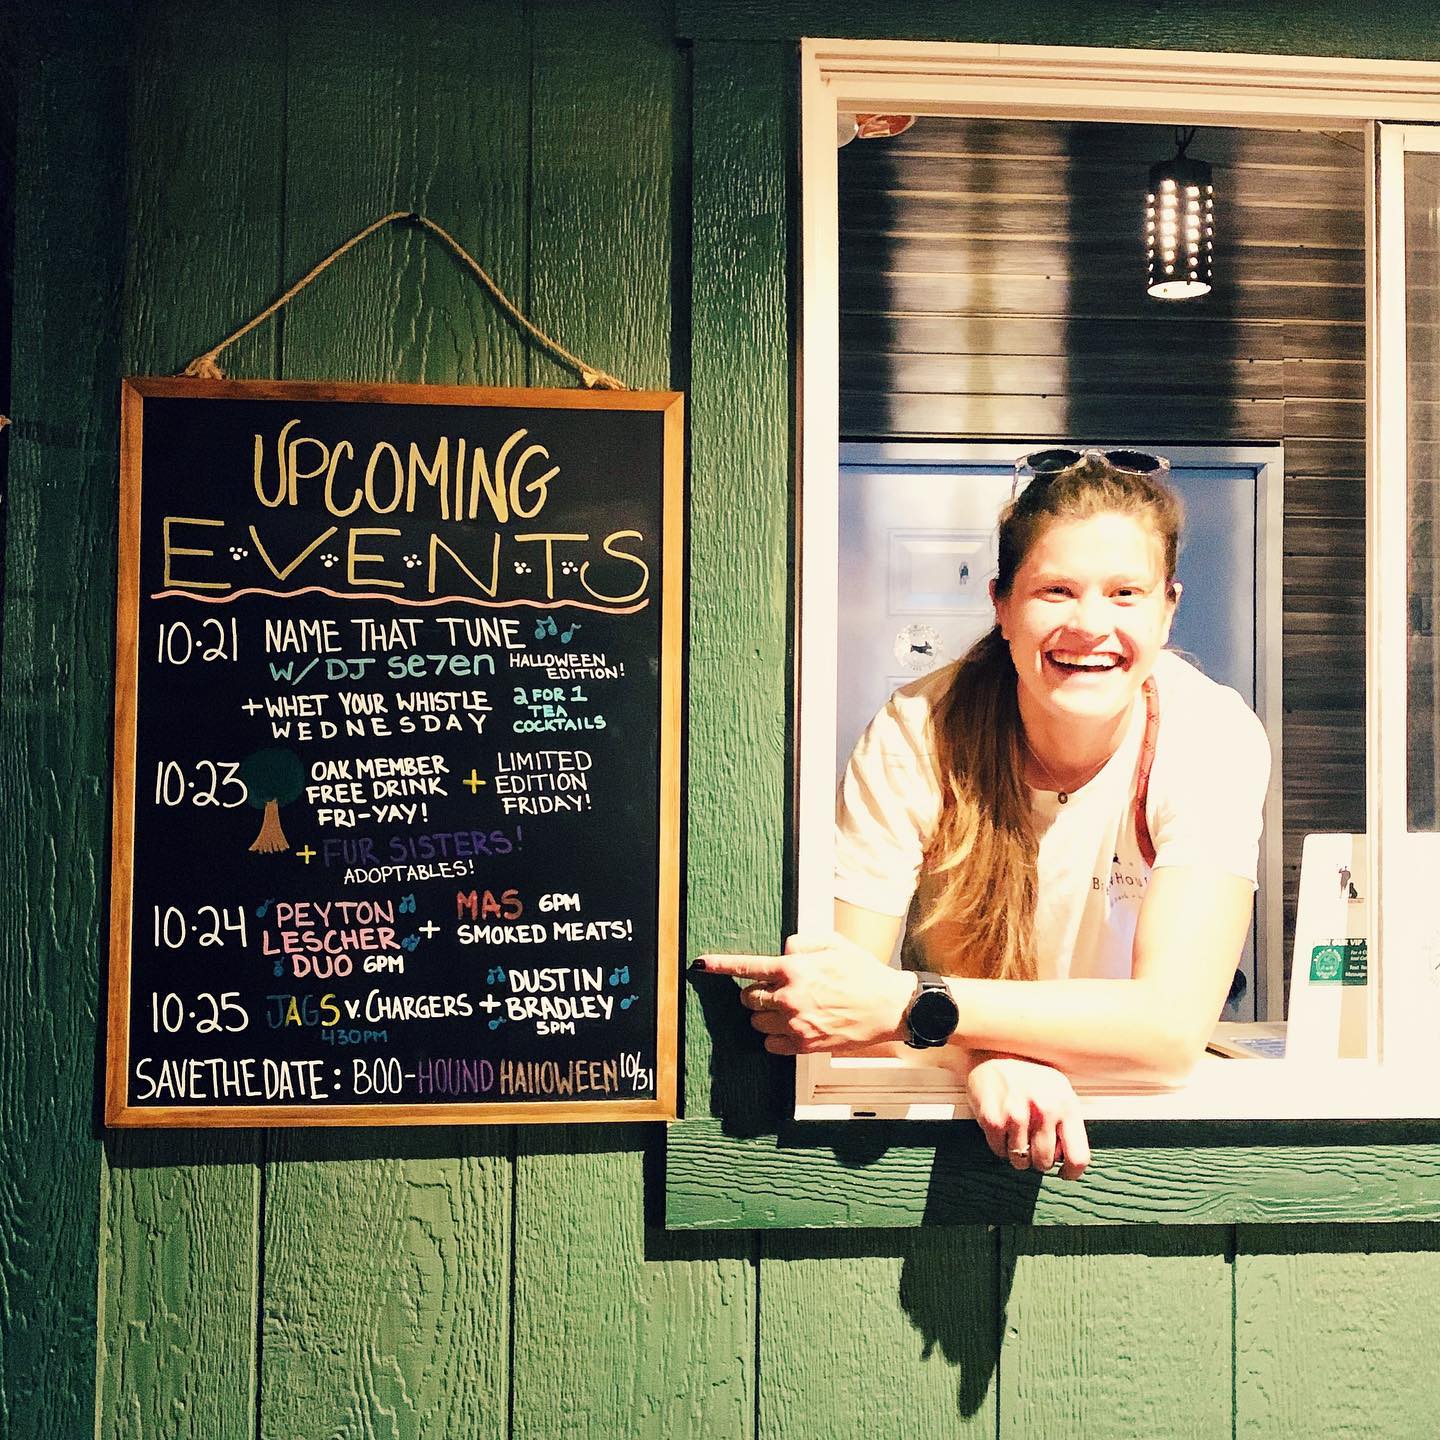 UPCOMING
EVENTS
10.21 NAME THAT TUNE
W/ DJ Se7en HALLOWEEN EDITION!
+ WHET YOUR WHISTLE WEDNESDAY 2 FOR 1 TEA COCKTAILS
10.23 OAK MEMBER FREE DRINK FRI-YAY! + LIMITED EDITION FRIDAY!
+ FUR SISTERS!
ADOPTABLES!
10.24 PEYTON LESCHER DUO 6PM + MAS 6PM SMOKED MEATS!
10.25 JAGS V. CHARGERS 430PM + DUSTIN BRADLEY 5PM
SAVE THE DATE: BOO-HOUND HALLOWEEN 10/31